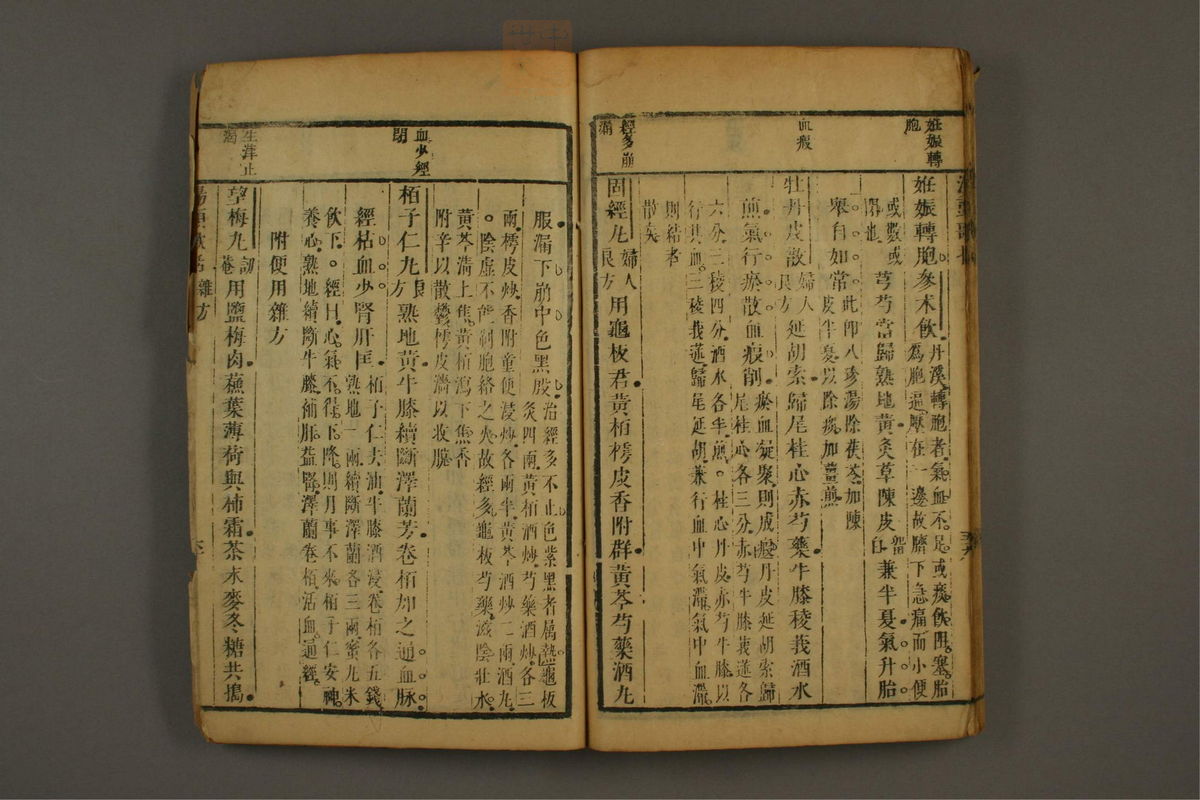 妊娠轉
胞
血瘕
經多崩
漏
妊娠轉胞參朮飲
丹溪轉胞者氣血不足或痰飲阻塞胎
為胞逼壓在一邊故臍下急痛而小便
或數或
閉也
芎芍當歸熟地黃炙草陳皮
留
白
兼半夏氣升胎
舉自如常
此即八珍湯除茯苓加陳
皮半夏以除痰加薑煎
牡丹皮散
婦人
良方
延胡索歸尾桂心赤芍藥牛膝稜莪酒水
煎氣行瘀散血瘕削
瘀血凝聚則成瘕丹皮延胡索歸
尾桂心各三分赤芍牛膝莪蓬各
六分三稜四分酒水各半煎。桂心丹皮赤芍牛膝以
行其血三稜莪蓬歸尾延胡兼行血中氣滯氣中血滯
則結者
散矣
固經丸
婦人
良方
用龜板君黃栢樗皮香附群黃芩芍藥酒丸
血少經
閉
生津止
渴
服漏下崩中色黑殷
治經多不止色紫黑者屬熱龜板
炙四兩黃栢酒炒芍藥酒炒各三
兩樗皮炒香附童便浸炒各兩半黃芩酒炒二兩酒丸
。陰虛不能制胞絡之火故經多龜板芍藥滋陰壯水
黃芩清上焦黃栢瀉下焦香
附辛以散鬱樗皮澀以收脫
栢子仁丸
良
方
熟地黃牛膝續斷澤蘭芳卷栢加之通血脉
經枯血少腎肝匡
栢子仁去油牛膝酒浸卷栢各五錢
熟地一兩續斷澤蘭各三兩蜜丸米
飲下。經曰心氣不得下降則月事不來栢子仁安神
養心熟地續斷牛膝補肝益腎澤蘭卷栢活血通經
附便用雜方
望梅丸
訒
菴
用鹽梅肉蘇葉薄荷與柿霜茶末麥冬糖共搗
湯頭歌括 雜方